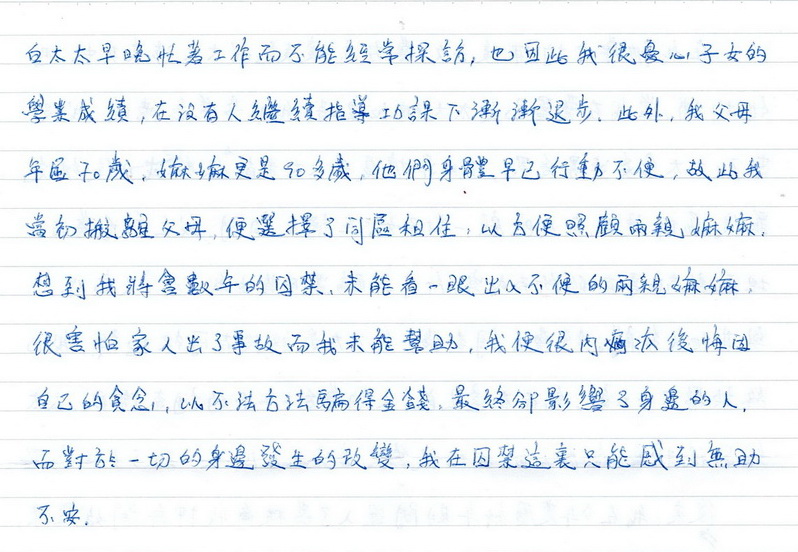 白太太早晚忙著工作而不能經常探訪，也因此我很憂心子女的
學業成績，在沒有人繼續指導功課下漸漸退步．此外，我父母
年屆70歲，嫲嫲更是90多歲，他們身體早已行動不便，故此我
當初搬離父母，便選擇了同區租住，以方便照顧兩親嫲嫲．
想到我將會數年的囚禁，未能看一眼出入不便的兩親嫲嫲，
很害怕家人出了事故而我未能幫助，我便很內疚後悔因
自己的貪念，以不法方法騙得金錢，最終卻影響了身邊的人，
而對於一切的身邊發生的改變，我在囚禁這裏只能感到無助
不安．